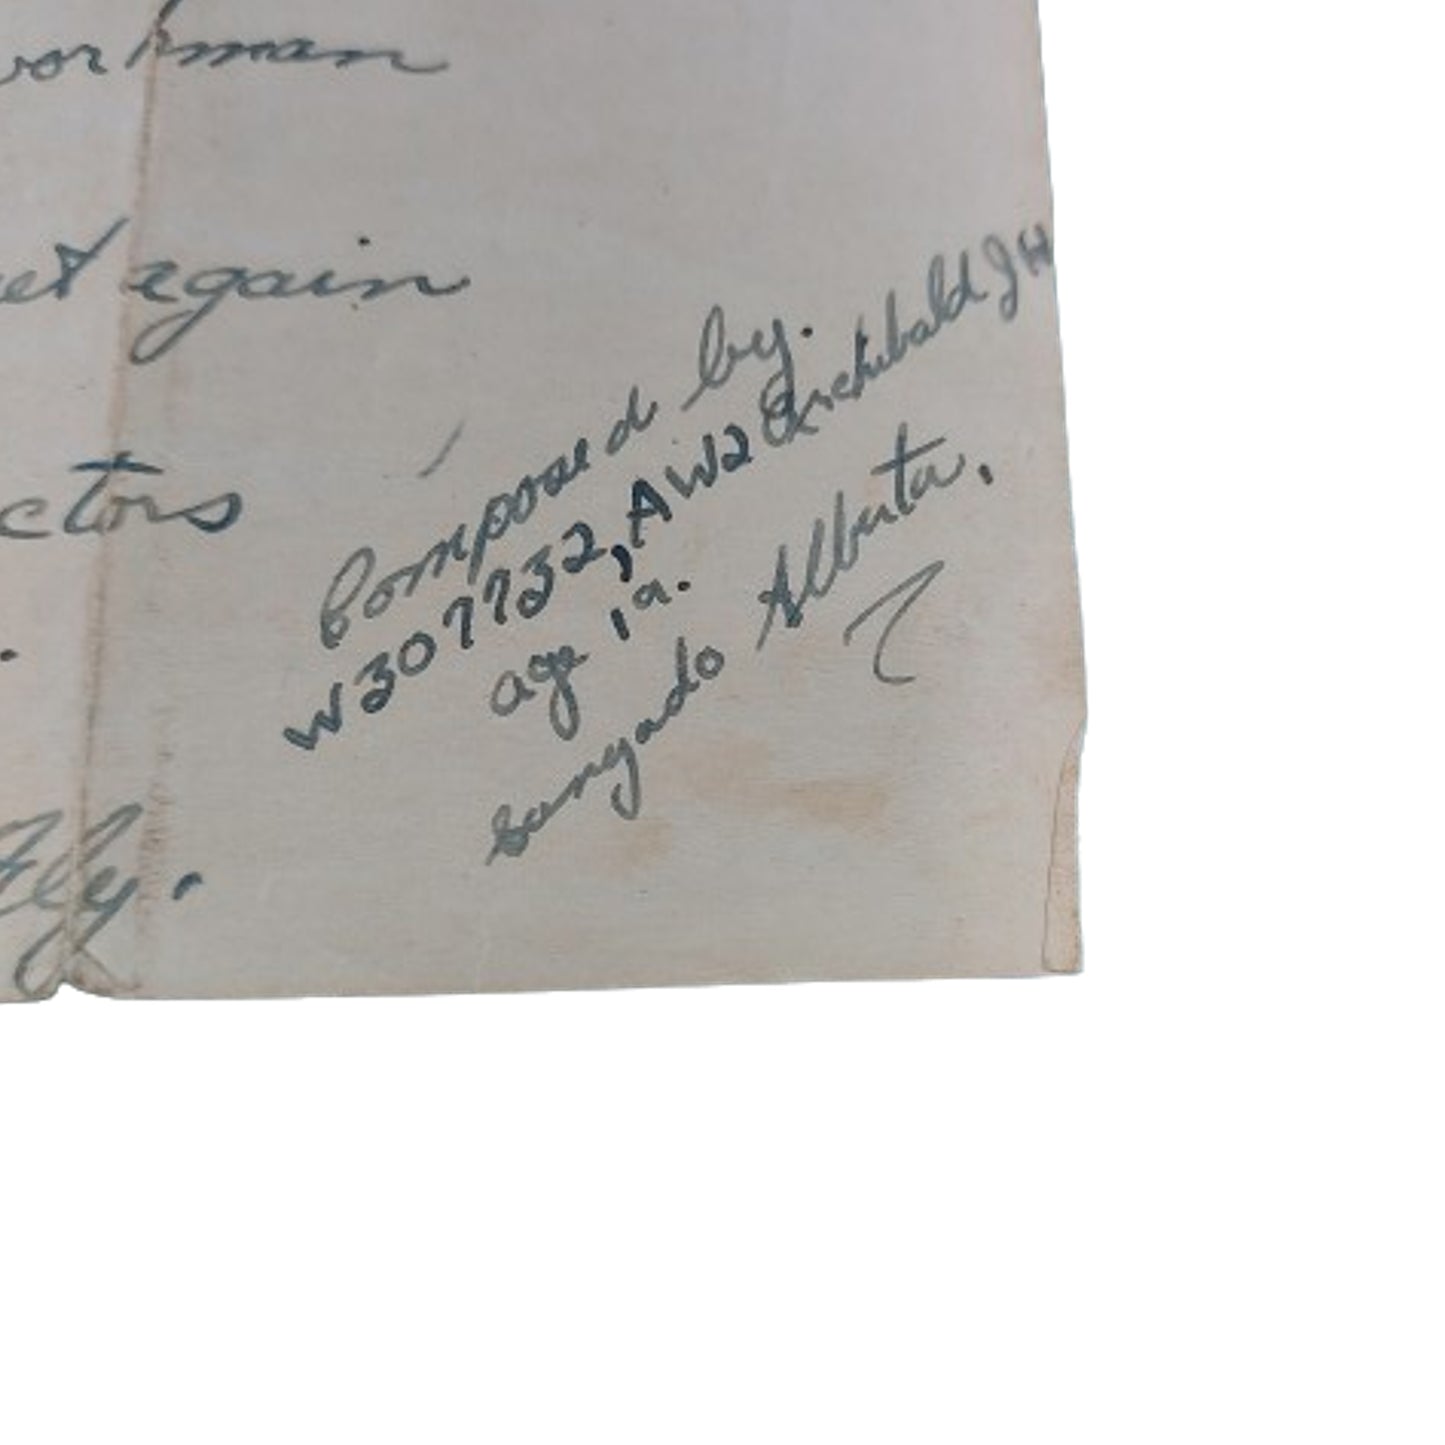 workman
again
Composed by.
W307732, AW2 Archibald JH
age 19.
Sangudo Alberta.
Fly.